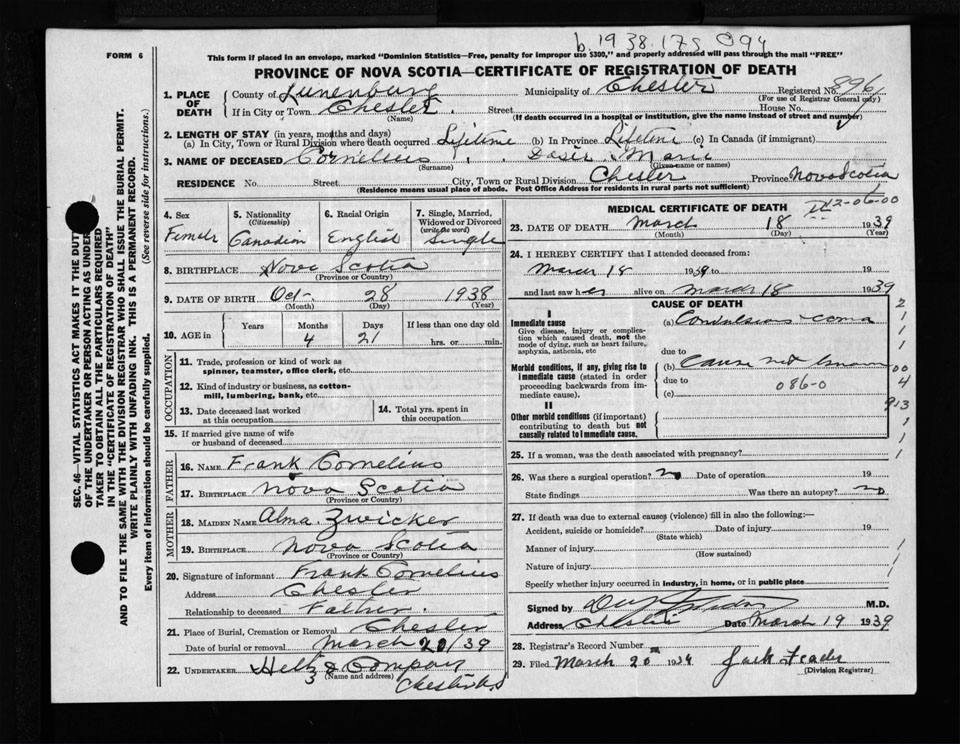 b. 1938.175094
FORM 6
This form if placed in an envelope, marked "Dominion Statistics—Free, penalty for improper use $300," and properly addressed will pass through the mail "FREE"
PROVINCE OF NOVA SCOTIA—CERTIFICATE OF REGISTRATION OF DEATH
1. PLACE OF DEATH County of Lunenburg Municipality of Chester Registered No. 896
(For use of Registrar General only)
If in City or Town Chester. Street House No.
(Name) (If death occurred in a hospital or institution, give the name instead of street and number)
2. LENGTH OF STAY (in years, months and days)
(a) In City, Town or Rural Division where death occurred Lifetime (b) In Province Lifetime (c) In Canada (if immigrant)
3. NAME OF DECEASED Cornelius Marie
(Surname) (Given name or names)
RESIDENCE No. Street City, Town or Rural Division Chester Province Nova Scotia
(Residence means usual place of abode. Post Office Address for residents in rural parts not sufficient)
4. Sex Female
5. Nationality (Citizenship) Canadian
6. Racial Origin English
7. Single, Married, Widowed or Divorced (write the word) Single
8. BIRTHPLACE Nova Scotia
(Province or Country)
9. DATE OF BIRTH Oct- 28 1938
(Month) (Day) (Year)
10. AGE in Years Months Days If less than one day old
4 21 hrs. or min.
OCCUPATION
11. Trade, profession or kind of work as spinner, teamster, office clerk, etc.
12. Kind of industry or business, as cotton-mill, lumbering, bank, etc.
13. Date deceased last worked at this occupation
14. Total yrs. spent in this occupation.
15. If married give name of wife or husband of deceased
FATHER
16. NAME Frank Cornelius
17. BIRTHPLACE Nova Scotia
(Province or Country)
MOTHER
18. MAIDEN NAME Alma Zwicker
19. BIRTHPLACE Nova Scotia
(Province or Country)
20. Signature of informant Frank Cornelius
Address Chester
Relationship to deceased Father.
21. Place of Burial, Cremation or Removal Chester
Date of burial or removal March 20/39
22. UNDERTAKER & Company
(Name and address) Chester N.S
MEDICAL CERTIFICATE OF DEATH
23. DATE OF DEATH March 18 1939
(Month) (Day) (Year)
24. I HEREBY CERTIFY that I attended deceased from:
March 18 1939 to 19
and last saw her alive on March 18 1939
CAUSE OF DEATH
I
Immediate cause
Give disease, injury or complication which caused death, not the mode of dying, such as heart failure, asphyxia, asthenia, etc
(a) Convulsions - coma
due to
Morbid conditions, if any, giving rise to immediate cause (stated in order proceeding backwards from immediate cause).
(b) Cause not known
due to 086-0
(c)
II
Other morbid conditions (if important) contributing to death but not causally related to immediate cause.
25. If a woman, was the death associated with pregnancy?
26. Was there a surgical operation? no Date of operation 19
State findings Was there an autopsy? no
27. If death was due to external causes (violence) fill in also the following:—
Accident, suicide or homicide? Date of injury 19
(State which)
Manner of injury
(How sustained)
Nature of injury
Specify whether injury occurred in industry, in home, or in public place
Signed by M.D.
Address Chester Date March 19 1939
28. Registrar's Record Number
29. Filed March 20 1939 Jack
(Division Registrar)
SEC. 46—VITAL STATISTICS ACT MAKES IT THE DUTY
OF THE UNDERTAKER OR PERSON ACTING AS UNDERTAKER TO OBTAIN ALL THE PARTICULARS REQUIRED
IN THE "CERTIFICATE OF REGISTRATION OF DEATH"
AND TO FILE THE SAME WITH THE DIVISION REGISTRAR WHO SHALL ISSUE THE BURIAL PERMIT.
WRITE PLAINLY WITH UNFADING INK. THIS IS A PERMANENT RECORD.
Every item of information should be carefully supplied. (See reverse side for instructions.)